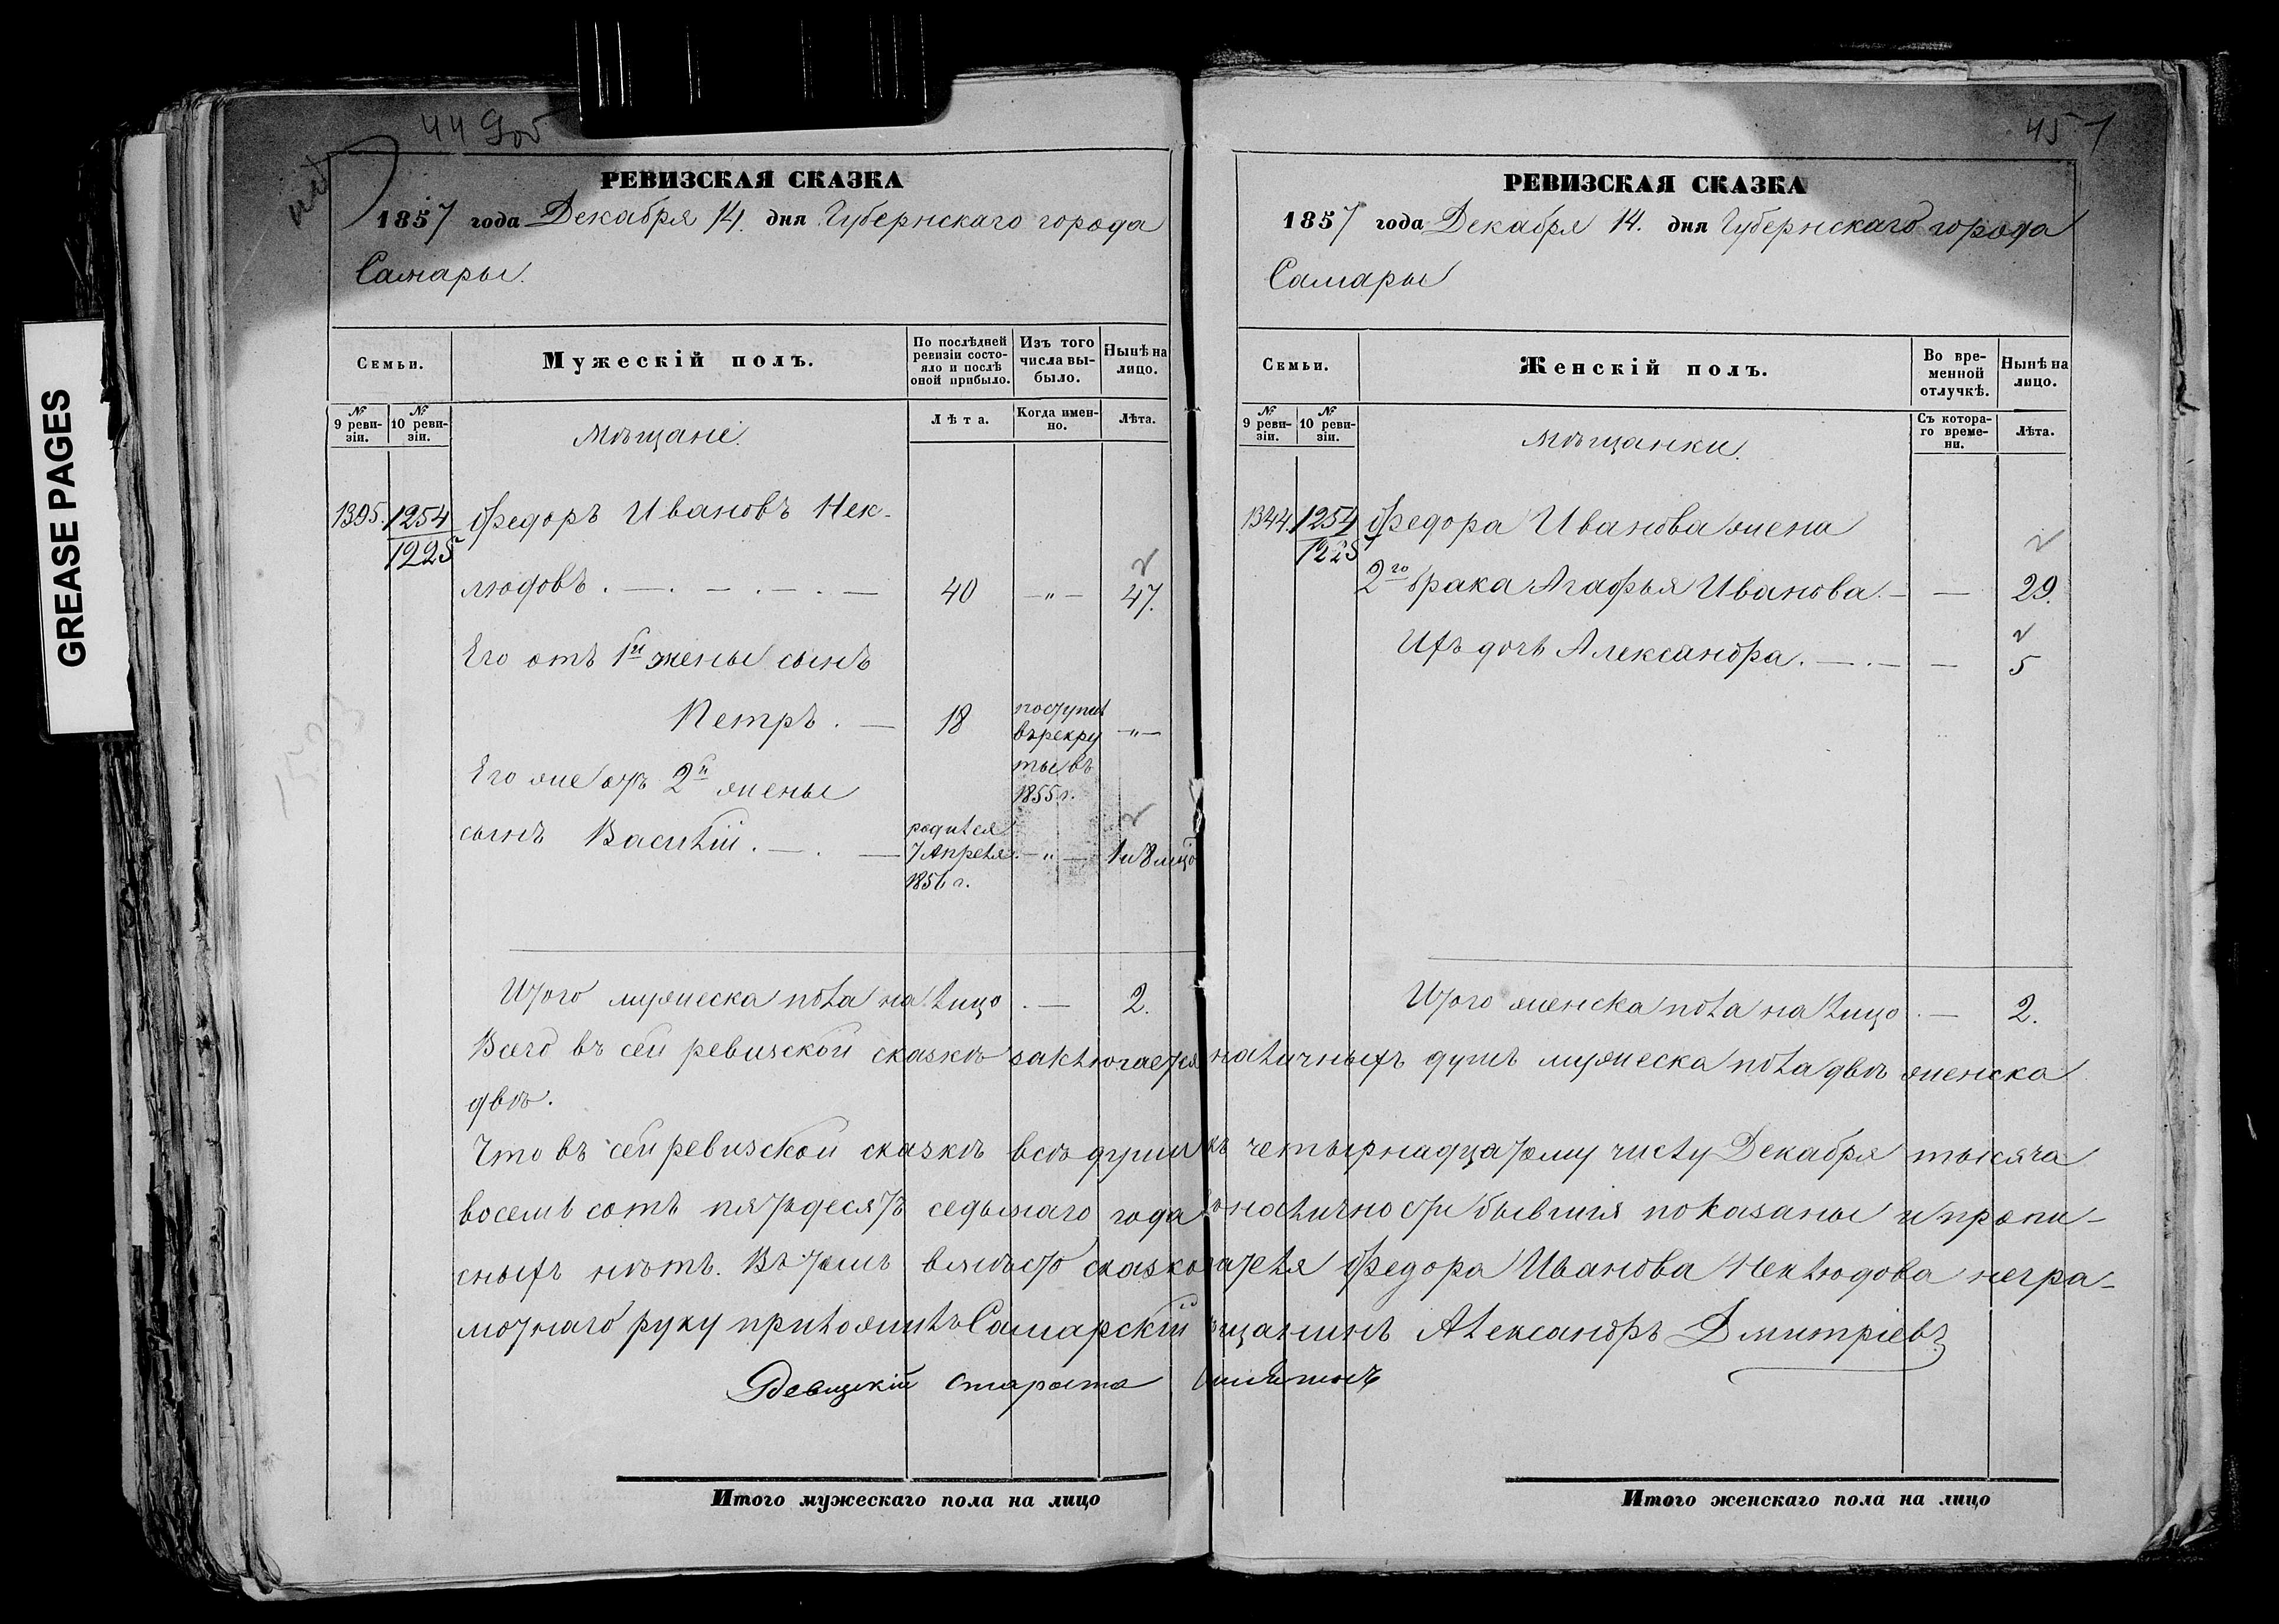 GREASE PAGES
44 9об
РЕВИЗСКАЯ СКАЗКА
1857 года Декабря 14. дня Губернскаго города
Самары.
Семьи.
Мужескій полъ.
По послѣдней ревизіи состояло и послѣ оной прибыло.
Изъ того числа выбыло.
Нынѣ на лицо.
№ 9 ревизіи.
№ 10 ревизіи.
Лѣта.
Когда именно.
Лѣта.
Мѣщане.
1395. 1254 Федоръ Ивановъ Нек-
1225
людовъ . — . — . — . — 40 —"— 47.
Его отъ 1й жены сынъ
Петръ . — 18 поступил въ рекруты въ 1855 г. —"—
Его же отъ 2й жены
сынъ Василій . — . — родился 7 Апреля 1856 г. —"— 1 и 8 мѣцо
Итого мужеска пола на лицо . — 2.
45 7
РЕВИЗСКАЯ СКАЗКА
1857 года Декабря 14. дня Губернскаго города
Самары
Семьи.
Женскій полъ.
Во временной отлучкѣ.
Нынѣ на лицо.
№ 9 ревизіи.
№ 10 ревизіи.
Съ котораго времени.
Лѣта.
Мѣщанки.
1344. 1254 Федора Иванова жена
1225
2го брака Агафья Иванова. — — 29.
Ихъ дочь Александра. — . — — 5
Итого женска пола на лицо . — 2.
Всего въ сей ревизской сказкѣ заключается наличныхъ душъ мужеска пола двѣ женска
двѣ.
Что въ сей ревизской сказкѣ всѣ души къ четырнадцатому числу Декабря тысяча
восемь сотъ пятьдесятъ седьмаго года въ наличности бывшія показаны и пропи-
сныхъ нѣтъ. Въ томъ вмѣсто сказкодателя Федора Иванова Неклюдова негра-
мотнаго руку приложилъ Самарскій мѣщанинъ Александръ Дмитріевъ
староста
Итого мужескаго пола на лицо
Итого женскаго пола на лицо